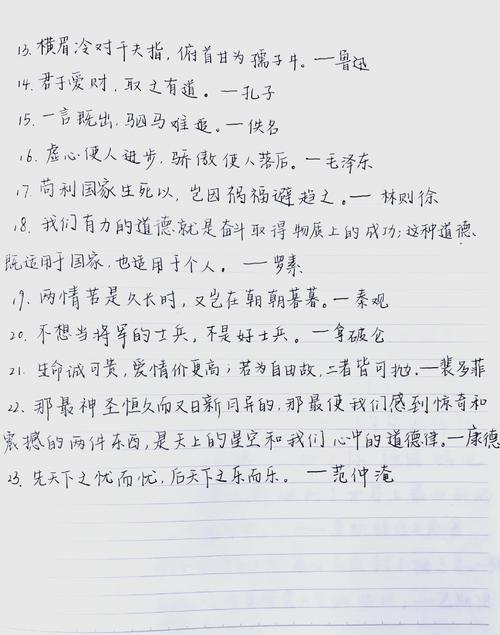 13. 横眉冷对千夫指，俯首甘为孺子牛。—鲁迅
14. 君子爱财，取之有道。—孔子
15. 一言既出，驷马难追。—佚名
16. 虚心使人进步，骄傲使人落后。—毛泽东
17. 苟利国家生死以，岂因祸福避趋之。— 林则徐
18. 我们有力的道德就是奋斗取得物质上的成功；这种道德
既适用于国家，也适用于个人。—罗素
19. 两情若是久长时，又岂在朝朝暮暮。—秦观
20. 不想当将军的士兵，不是好士兵。—拿破仑
21. 生命诚可贵，爱情价更高；若为自由故，二者皆可抛。—裴多菲
22. 那最神圣恒久而又日新月异的，那最使我们感到惊奇和
震撼的两件东西，是天上的星空和我们心中的道德律。—康德
23. 先天下之忧而忧，后天下之乐而乐。—范仲淹